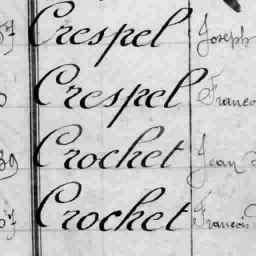 Crespel Joseph
Crespel Francois
Crochet Jean
Crochet Francois